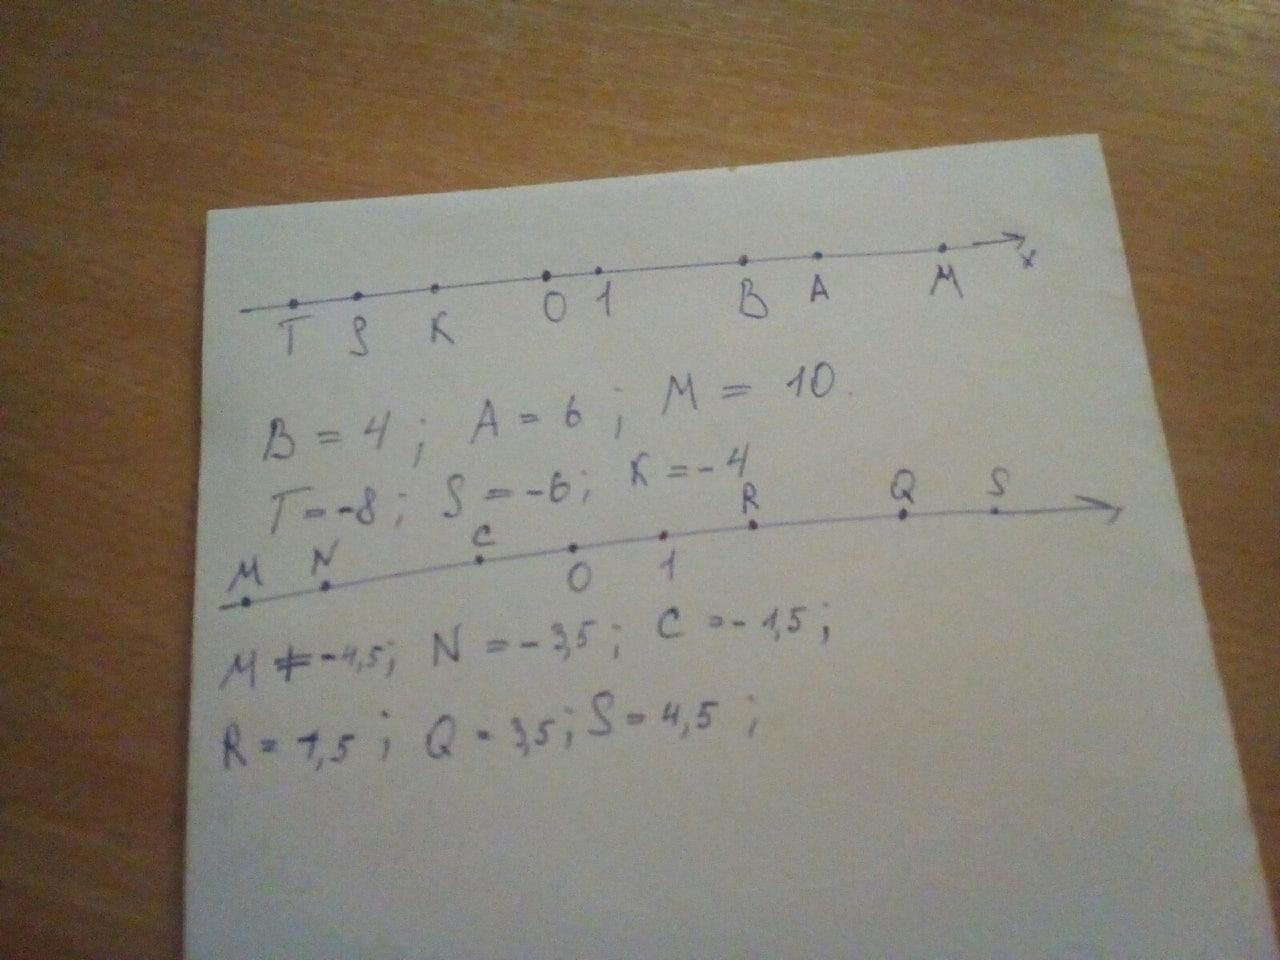 T S K O 1 B A M x
B = 4 ; A = 6 ; M = 10.
T = -8 ; S = -6 ; K = -4
M N C O 1 R Q S
M = -4,5 ; N = -3,5 ; C = -1,5 ;
R = 1,5 ; Q = 3,5 ; S = 4,5 ;